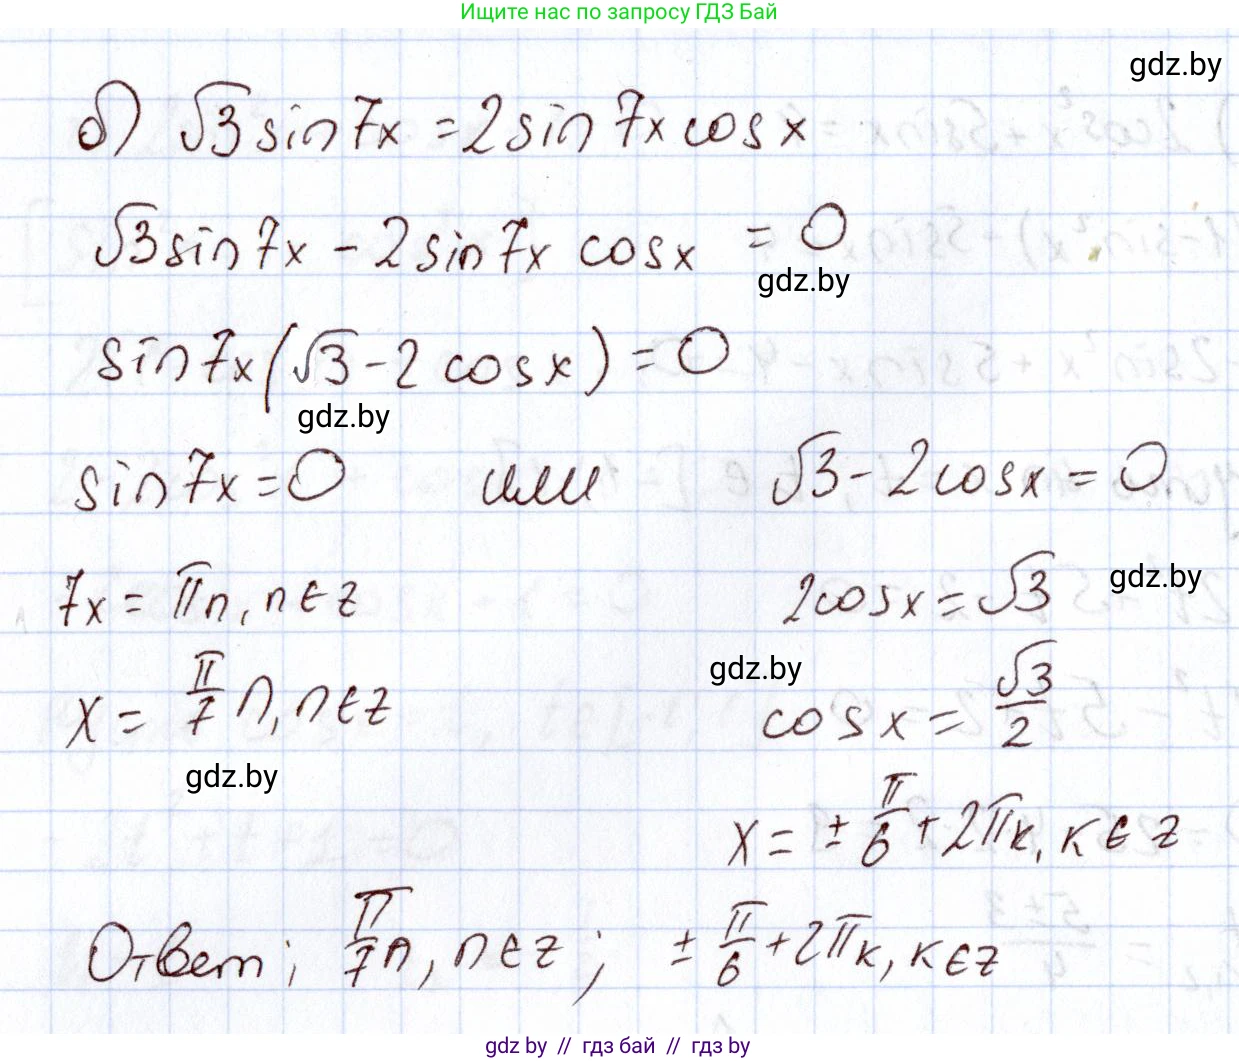 Ищите нас по запросу ГДЗ Бай
gdz.by
б) √3 sin 7x = 2 sin 7x cos x
√3 sin 7x - 2 sin 7x cos x = 0
gdz.by
sin 7x (√3 - 2 cos x) = 0
gdz.by
sin 7x = 0 или √3 - 2 cos x = 0
7x = πn, n ∈ z 2 cos x = √3
gdz.by
x = π/7 n, n ∈ z cos x = √3/2
gdz.by
gdz.by
x = ± π/6 + 2πk, k ∈ z
Ответ; π/7 n, n ∈ z; ± π/6 + 2πk, k ∈ z
gdz.by // гдз бай // гдз by